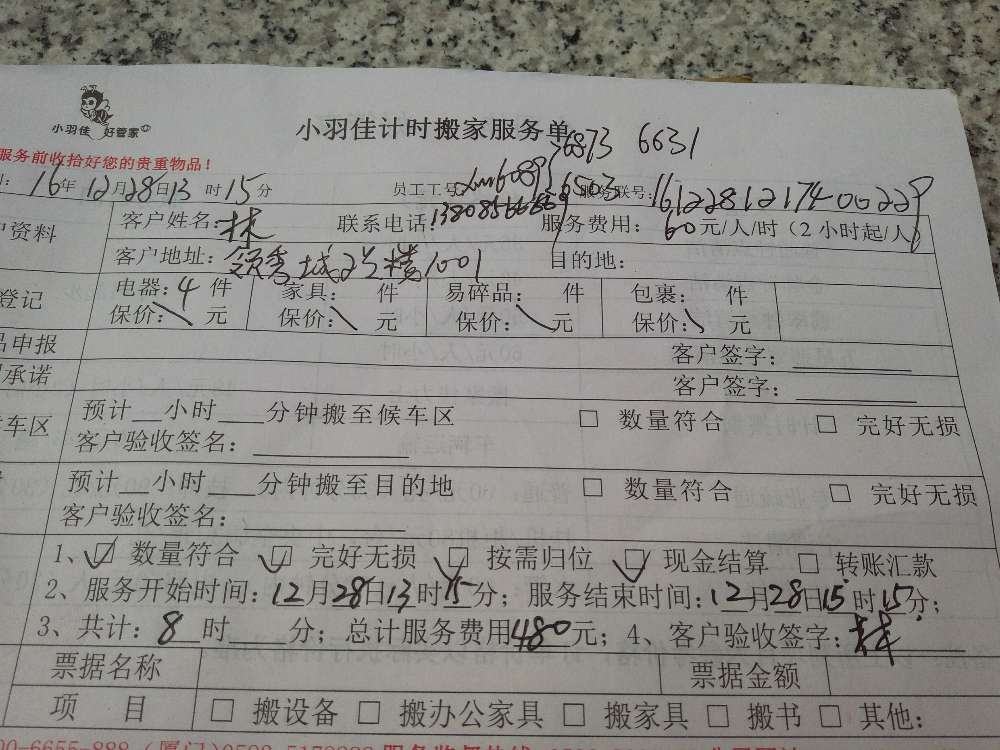 小羽佳 好管家
小羽佳计时搬家服务单
6873 6631
服务前收拾好您的贵重物品!
16年12月28日13时15分 员工工号: 6089 6503 服务联号: 1612281217400229
户资料 客户姓名: 林 联系电话: 服务费用: 60元/人/时 (2小时起/人)
客户地址: 领秀城2号楼1001 目的地:
登记 电器: 4 件 家具: 件 易碎品: 件 包裹: 件
保价: \ 元 保价: \ 元 保价: \ 元 保价: \ 元
品申报 客户签字:
承诺 客户签字:
车区 预计__小时____分钟搬至候车区 □ 数量符合 □ 完好无损
客户验收签名:
预计__小时____分钟搬至目的地 □ 数量符合 □ 完好无损
客户验收签名:
1、☑ 数量符合 ☑ 完好无损 ☑ 按需归位 ☑ 现金结算 □ 转账汇款
2、服务开始时间: 12月28日13时15分; 服务结束时间: 12月28日15时15分;
3、共计: 8 时 分; 总计服务费用480元; 4、客户验收签字: 林
票据名称 票据金额
项 目 □ 搬设备 □ 搬办公家具 □ 搬家具 □ 搬书 □ 其他: